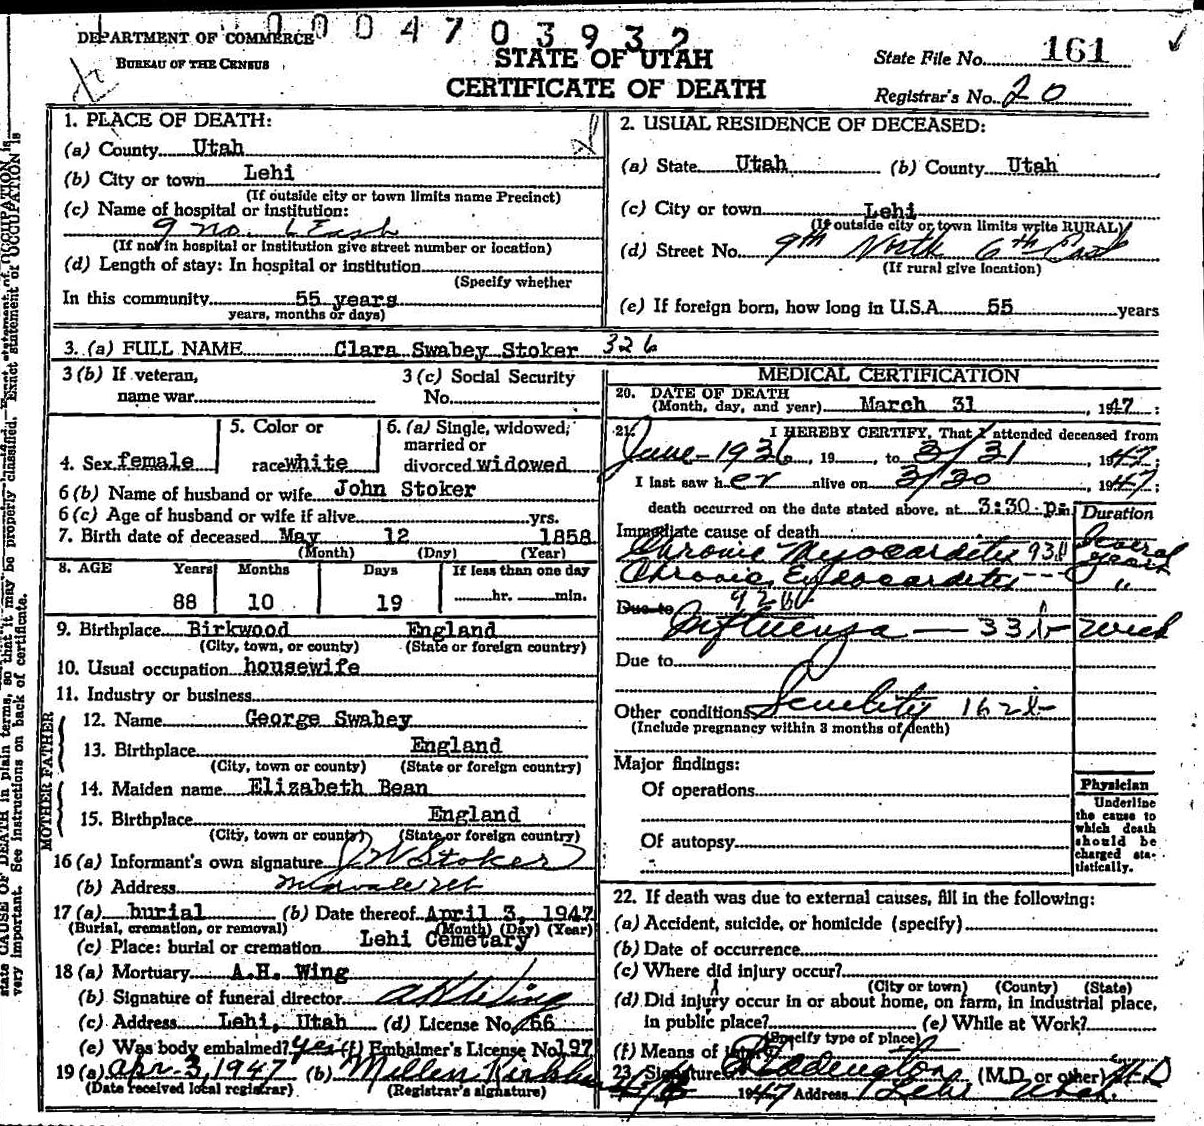 0004703932
DEPARTMENT OF COMMERCE
BUREAU OF THE CENSUS
STATE OF UTAH
CERTIFICATE OF DEATH
State File No. 161
Registrar's No. 20
1. PLACE OF DEATH:
(a) County Utah
(b) City or town Lehi
(If outside city or town limits name Precinct)
(c) Name of hospital or institution:
9 no. 6 East
(If not in hospital or institution give street number or location)
(d) Length of stay: In hospital or institution
(Specify whether
In this community 55 years
years, months or days)
2. USUAL RESIDENCE OF DECEASED:
(a) State Utah (b) County Utah
(c) City or town Lehi
(If outside city or town limits write RURAL)
(d) Street No. 9th North 6th East
(If rural give location)
(e) If foreign born, how long in U.S.A. 55 years
3. (a) FULL NAME Clara Swabey Stoker 326
3 (b) If veteran,
name war
3 (c) Social Security
No.
4. Sex female
5. Color or
race white
6. (a) Single, widowed,
married or
divorced widowed
6 (b) Name of husband or wife John Stoker
6 (c) Age of husband or wife if alive yrs.
7. Birth date of deceased May 12 1858
(Month) (Day) (Year)
8. AGE Years Months Days If less than one day
88 10 19 hr. min.
9. Birthplace Birkwood England
(City, town, or county) (State or foreign country)
10. Usual occupation housewife
11. Industry or business
FATHER
12. Name George Swabey
13. Birthplace England
(City, town or county) (State or foreign country)
MOTHER
14. Maiden name Elizabeth Bean
15. Birthplace England
(City, town or county) (State or foreign country)
16 (a) Informant's own signature J W Stoker
(b) Address Midvale Ut
17 (a) burial (b) Date thereof April 3, 1947
(Burial, cremation, or removal) (Month) (Day) (Year)
(c) Place: burial or cremation Lehi Cemetary
18 (a) Mortuary A.H. Wing
(b) Signature of funeral director A H Wing
(c) Address Lehi, Utah (d) License No. 166
(e) Was body embalmed? yes (f) Embalmer's License No. 197
19 (a) Apr. 3, 1947 (b)
(Date received local registrar) (Registrar's signature)
MEDICAL CERTIFICATION
20. DATE OF DEATH
(Month, day, and year) March 31, 1947
21. I HEREBY CERTIFY, That I attended deceased from
June 1936, 19, to 3/31, 1947;
I last saw her alive on 3/30, 1947;
death occurred on the date stated above, at 3:30 p.m.
Duration
Immediate cause of death
Chronic Myocarditis 93D Several years
Chronic Endocarditis "
92BV
Due to
Influenza — 33b week
Due to
Other conditions Senility 162b
(Include pregnancy within 3 months of death)
Major findings:
Of operations
Of autopsy
Physician
Underline
the cause to
which death
should be
charged sta-
tistically.
22. If death was due to external causes, fill in the following:
(a) Accident, suicide, or homicide (specify)
(b) Date of occurrence
(c) Where did injury occur?
(City or town) (County) (State)
(d) Did injury occur in or about home, on farm, in industrial place,
in public place? (e) While at Work?
(Specify type of place)
(f) Means of injury
23. Signature Eddington (M.D. or other) M.D
1947 Address Lehi Utah.
state CAUSE OF DEATH in plain terms, so that it may be properly classified. Exact statement of OCCUPATION is
very important. See instructions on back of certificate.